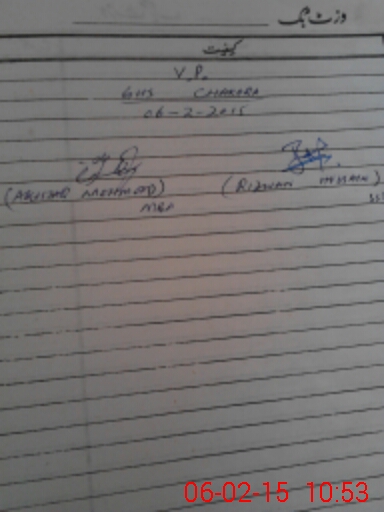 وزٹ بک
کیفیت
V.P.
GHS CHAKORA
06-2-2015
(MEHMOOD)
(RIZWAN
MEA
06-02-15 10:53